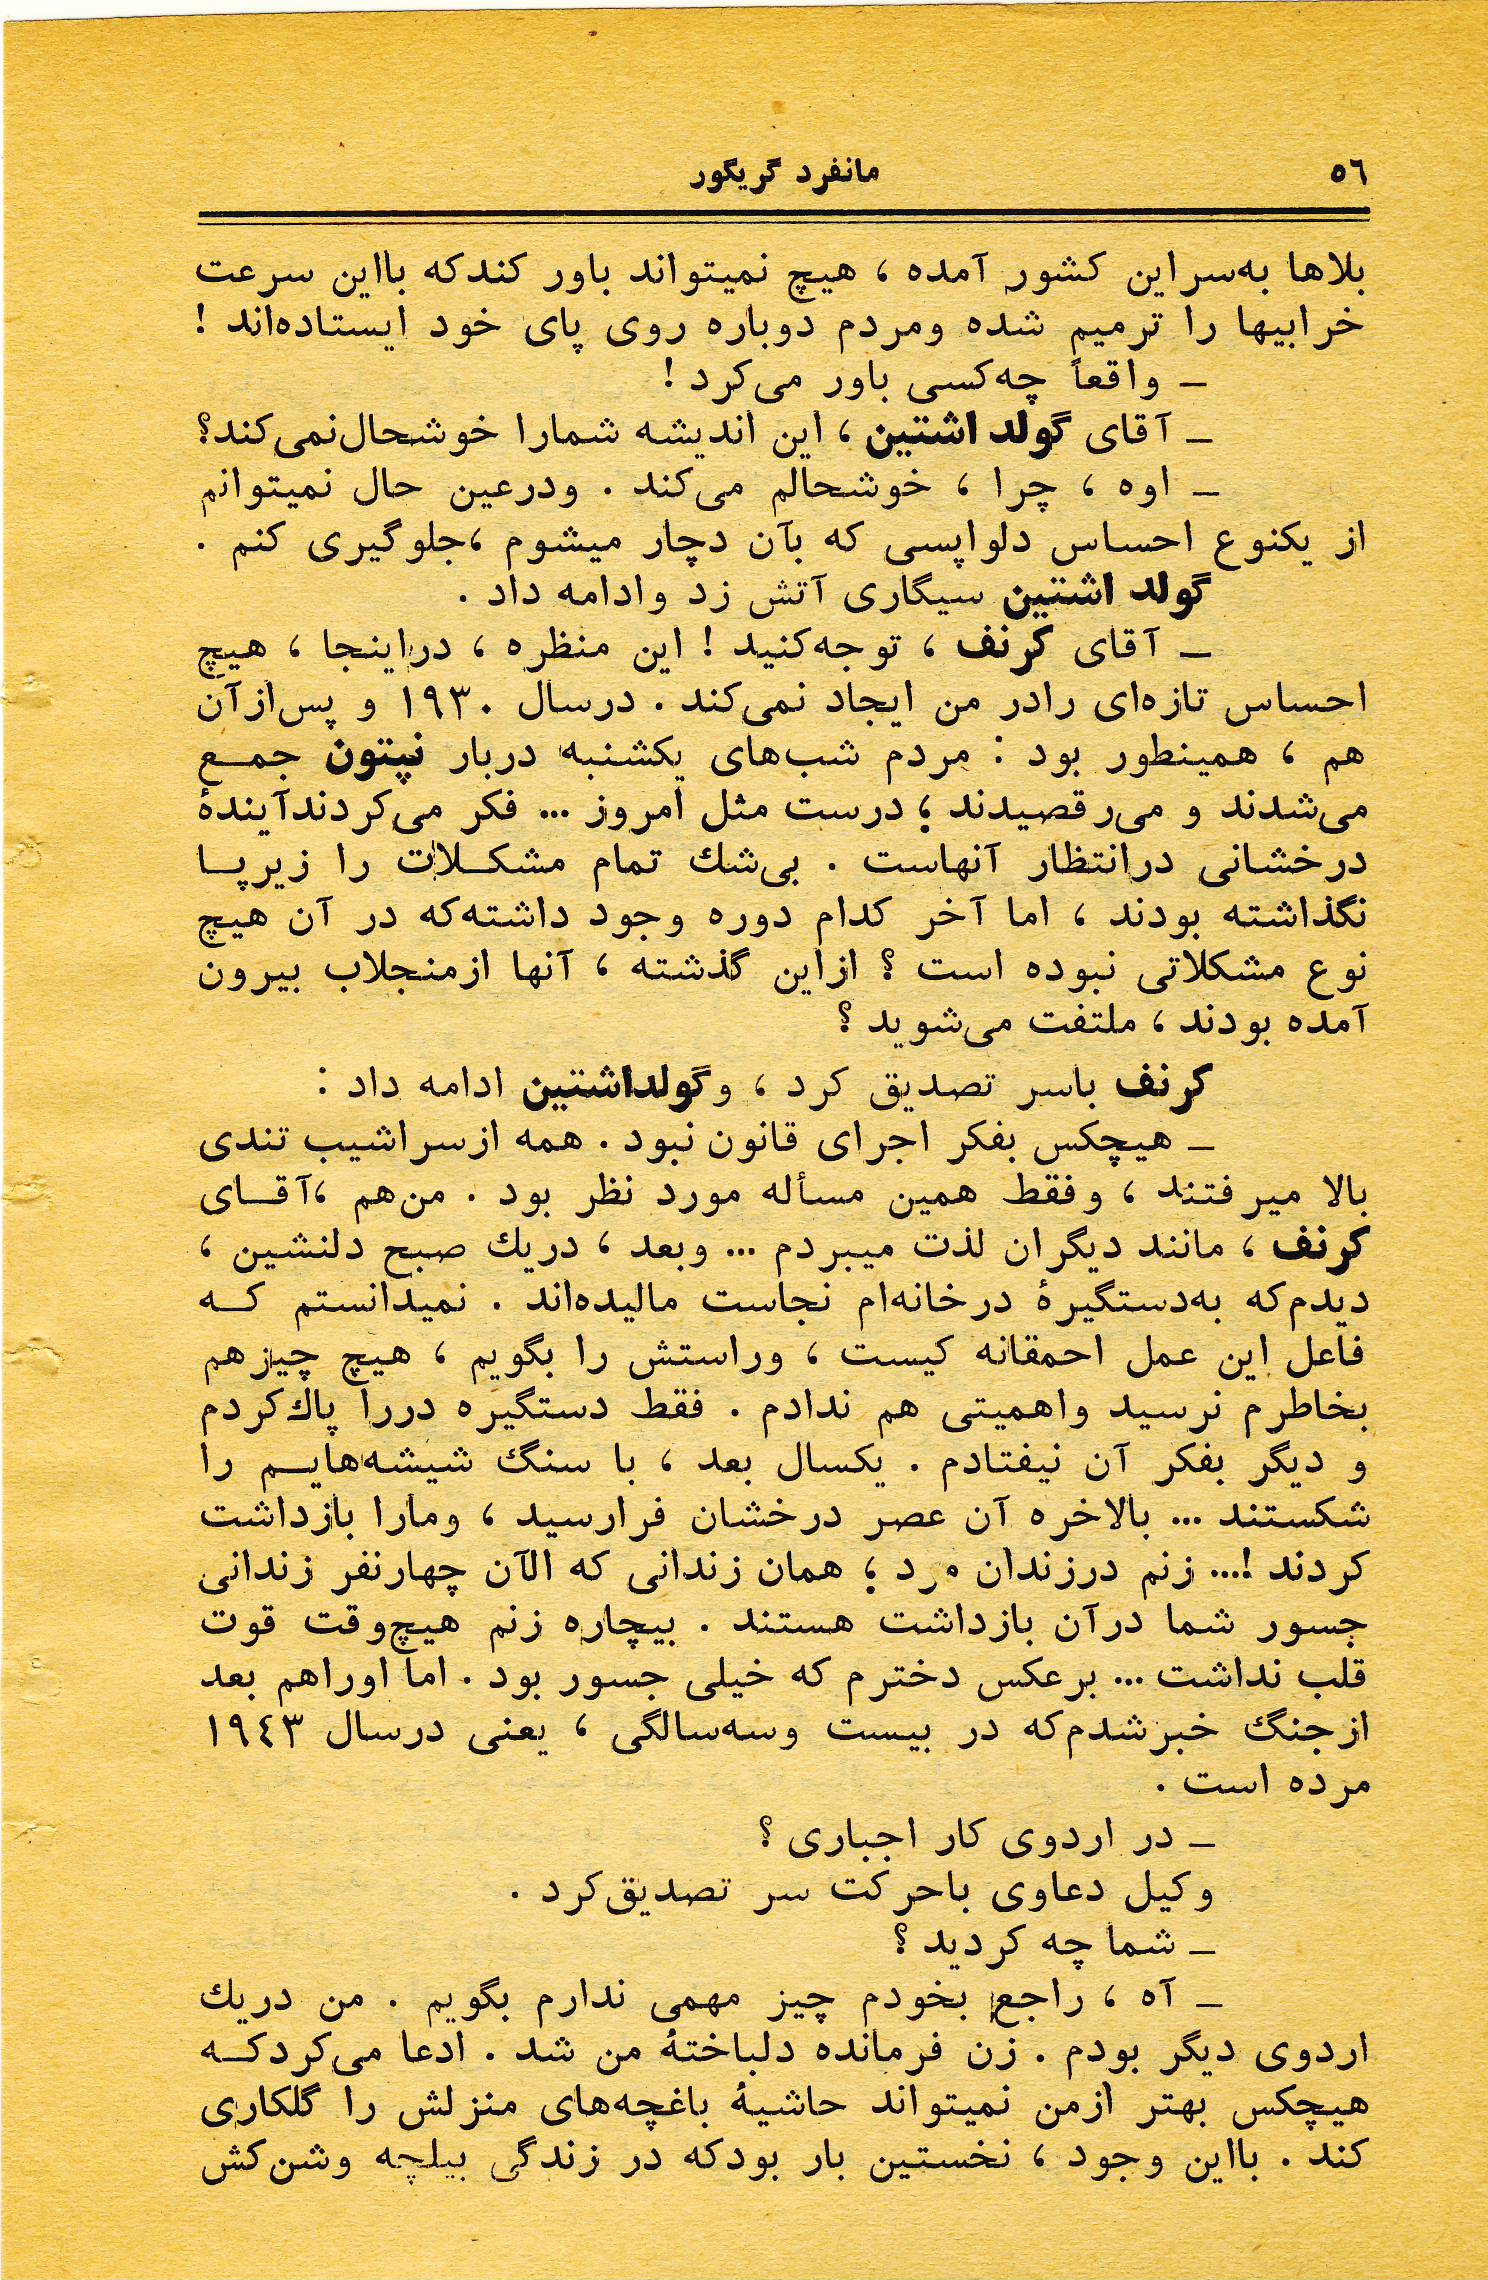 ٥٦
مانفرد گریگور
بلاها به‌سراین کشور آمده ، هیچ نمیتواند باور کندکه بااین سرعت
خرابیها را ترمیم شده ومردم دوباره روی پای خود ایستاده‌اند !
ــ واقعاً چه‌کسی باور می‌کرد !
ــ آقای گولد اشتین ، این اندیشه شمارا خوشحال‌نمی‌کند؟
ــ اوه ، چرا ، خوشحالم می‌کند . ودرعین حال نمیتوانم
از یکنوع احساس دلواپسی که بآن دچار میشوم ،جلوگیری کنم .
گولد اشتین سیگاری آتش زد وادامه داد .
ــ آقای کرنف ، توجه‌کنید ! این منظره ، دراینجا ، هیچ
احساس تازه‌ای رادر من ایجاد نمی‌کند . درسال ۱۹۳۰ و پس‌ازآن
هم ، همینطور بود : مردم شب‌های یکشنبه دربار نپتون جمـع
می‌شدند و می‌رقصیدند ؛ درست مثل امروز ... فکر می‌کردندآیندهٔ
درخشانی درانتظار آنهاست . بی‌شك تمام مشکـلات را زیرپـا
نگذاشته بودند ، اما آخر کدام دوره وجود داشته‌که در آن هیچ
نوع مشکلاتی نبوده است ؟ ازاین گذشته ، آنها ازمنجلاب بیرون
آمده بودند ، ملتفت می‌شوید ؟
کرنف باسر تصدیق کرد ، وگولداشتین ادامه داد :
ــ هیچکس بفکر اجرای قانون نبود . همه ازسراشیب تندی
بالا میرفتند ، وفقط همین مسأله مورد نظر بود . من‌هم ،آقـای
کرنف ، مانند دیگران لذت میبردم ... وبعد ، دریك صبح دلنشین ،
دیدم‌که به‌دستگیرهٔ درخانه‌ام نجاست مالیده‌اند . نمیدانستم کـه
فاعل این عمل احمقانه کیست ، وراستش را بگویم ، هیچ چیزهم
بخاطرم نرسید واهمیتی هم ندادم . فقط دستگیره دررا پاك‌کردم
و دیگر بفکر آن نیفتادم . یکسال بعد ، با سنگ شیشه‌هایـم را
شکستند ... بالاخره آن عصر درخشان فرارسید ، ومارا بازداشت
کردند !... زنم درزندان مرد ؛ همان زندانی که الآن چهارنفر زندانی
جسور شما درآن بازداشت هستند . بیچاره زنم هیچ‌وقت قوت
قلب نداشت ... برعکس دخترم که خیلی جسور بود . اما اوراهم بعد
ازجنگ خبرشدم‌که در بیست وسه‌سالگی ، یعنی درسال ۱۹٤۳
مرده است .
ــ در اردوی کار اجباری ؟
وکیل دعاوی باحرکت سر تصدیق‌کرد .
ــ شما چه کردید ؟
ــ آه ، راجع بخودم چیز مهمی ندارم بگویم . من دریك
اردوی دیگر بودم . زن فرمانده دلباختهٔ من شد . ادعا می‌کردکـه
هیچکس بهتر ازمن نمیتواند حاشیهٔ باغچه‌های منزلش را گلکاری
کند . بااین وجود ، نخستین بار بودکه در زندگی بیلچه وشن‌کش